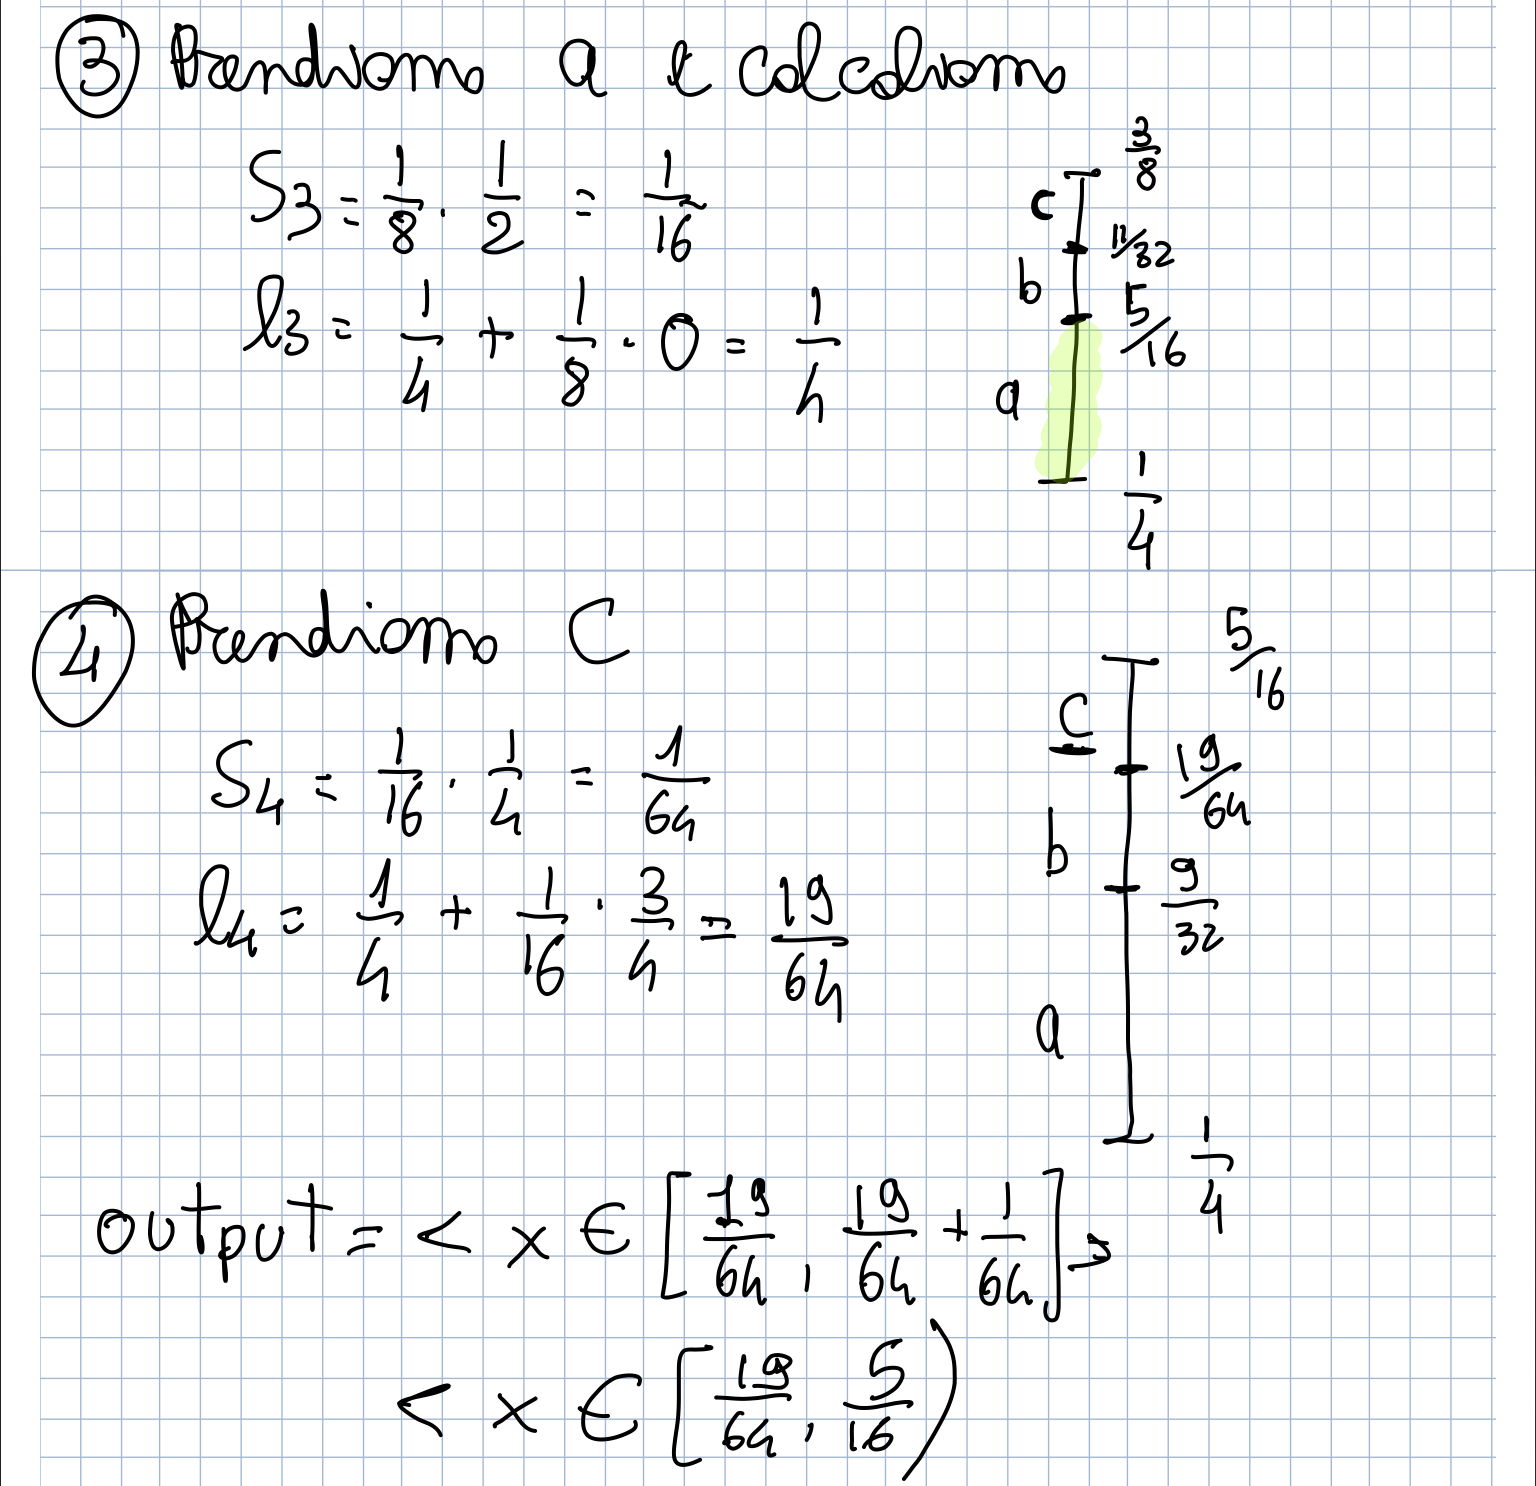 ③ Prendiamo a e calcoliamo
S3 = 1/8 · 1/2 = 1/16
l3 = 1/4 + 1/8 · 0 = 1/4
3/8
c
11/32
b
5/16
a
1/4
④ Prendiamo C
S4 = 1/16 · 1/4 = 1/64
l4 = 1/4 + 1/16 · 3/4 = 19/64
5/16
c
19/64
b
9/32
a
1/4
output = < x ∈ [19/64, 19/64 + 1/64]>
< x ∈ [19/64, 5/16)